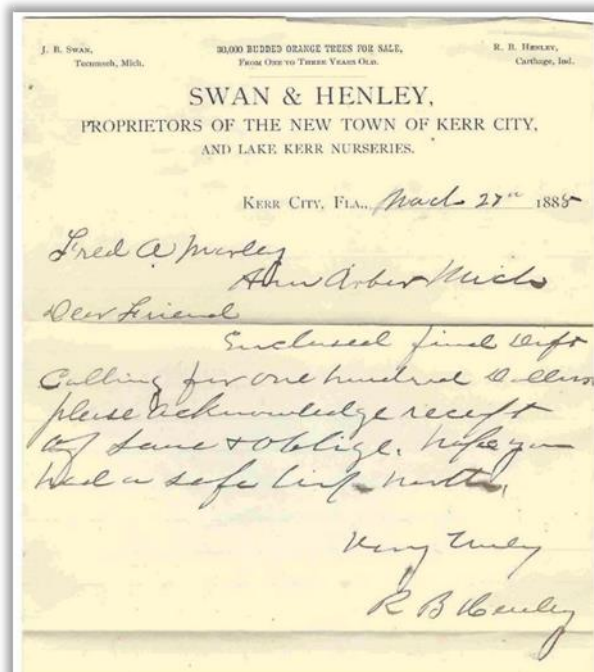 J. B. Swan,
Tecumseh, Mich.
30,000 BUDDED ORANGE TREES FOR SALE,
From One to Three Years Old.
R. B. Henley,
Carthage, Ind.
SWAN & HENLEY,
PROPRIETORS OF THE NEW TOWN OF KERR CITY,
AND LAKE KERR NURSERIES.
Kerr City, Fla., March 27th 1885
Fred A
Ann Arbor Mich
Dear Friend
Enclosed find Dift
Calling for one hundred Dollars
please acknowledge receipt
of same & oblige. hope you
had a safe trip north.
Very Truly
R B Henley